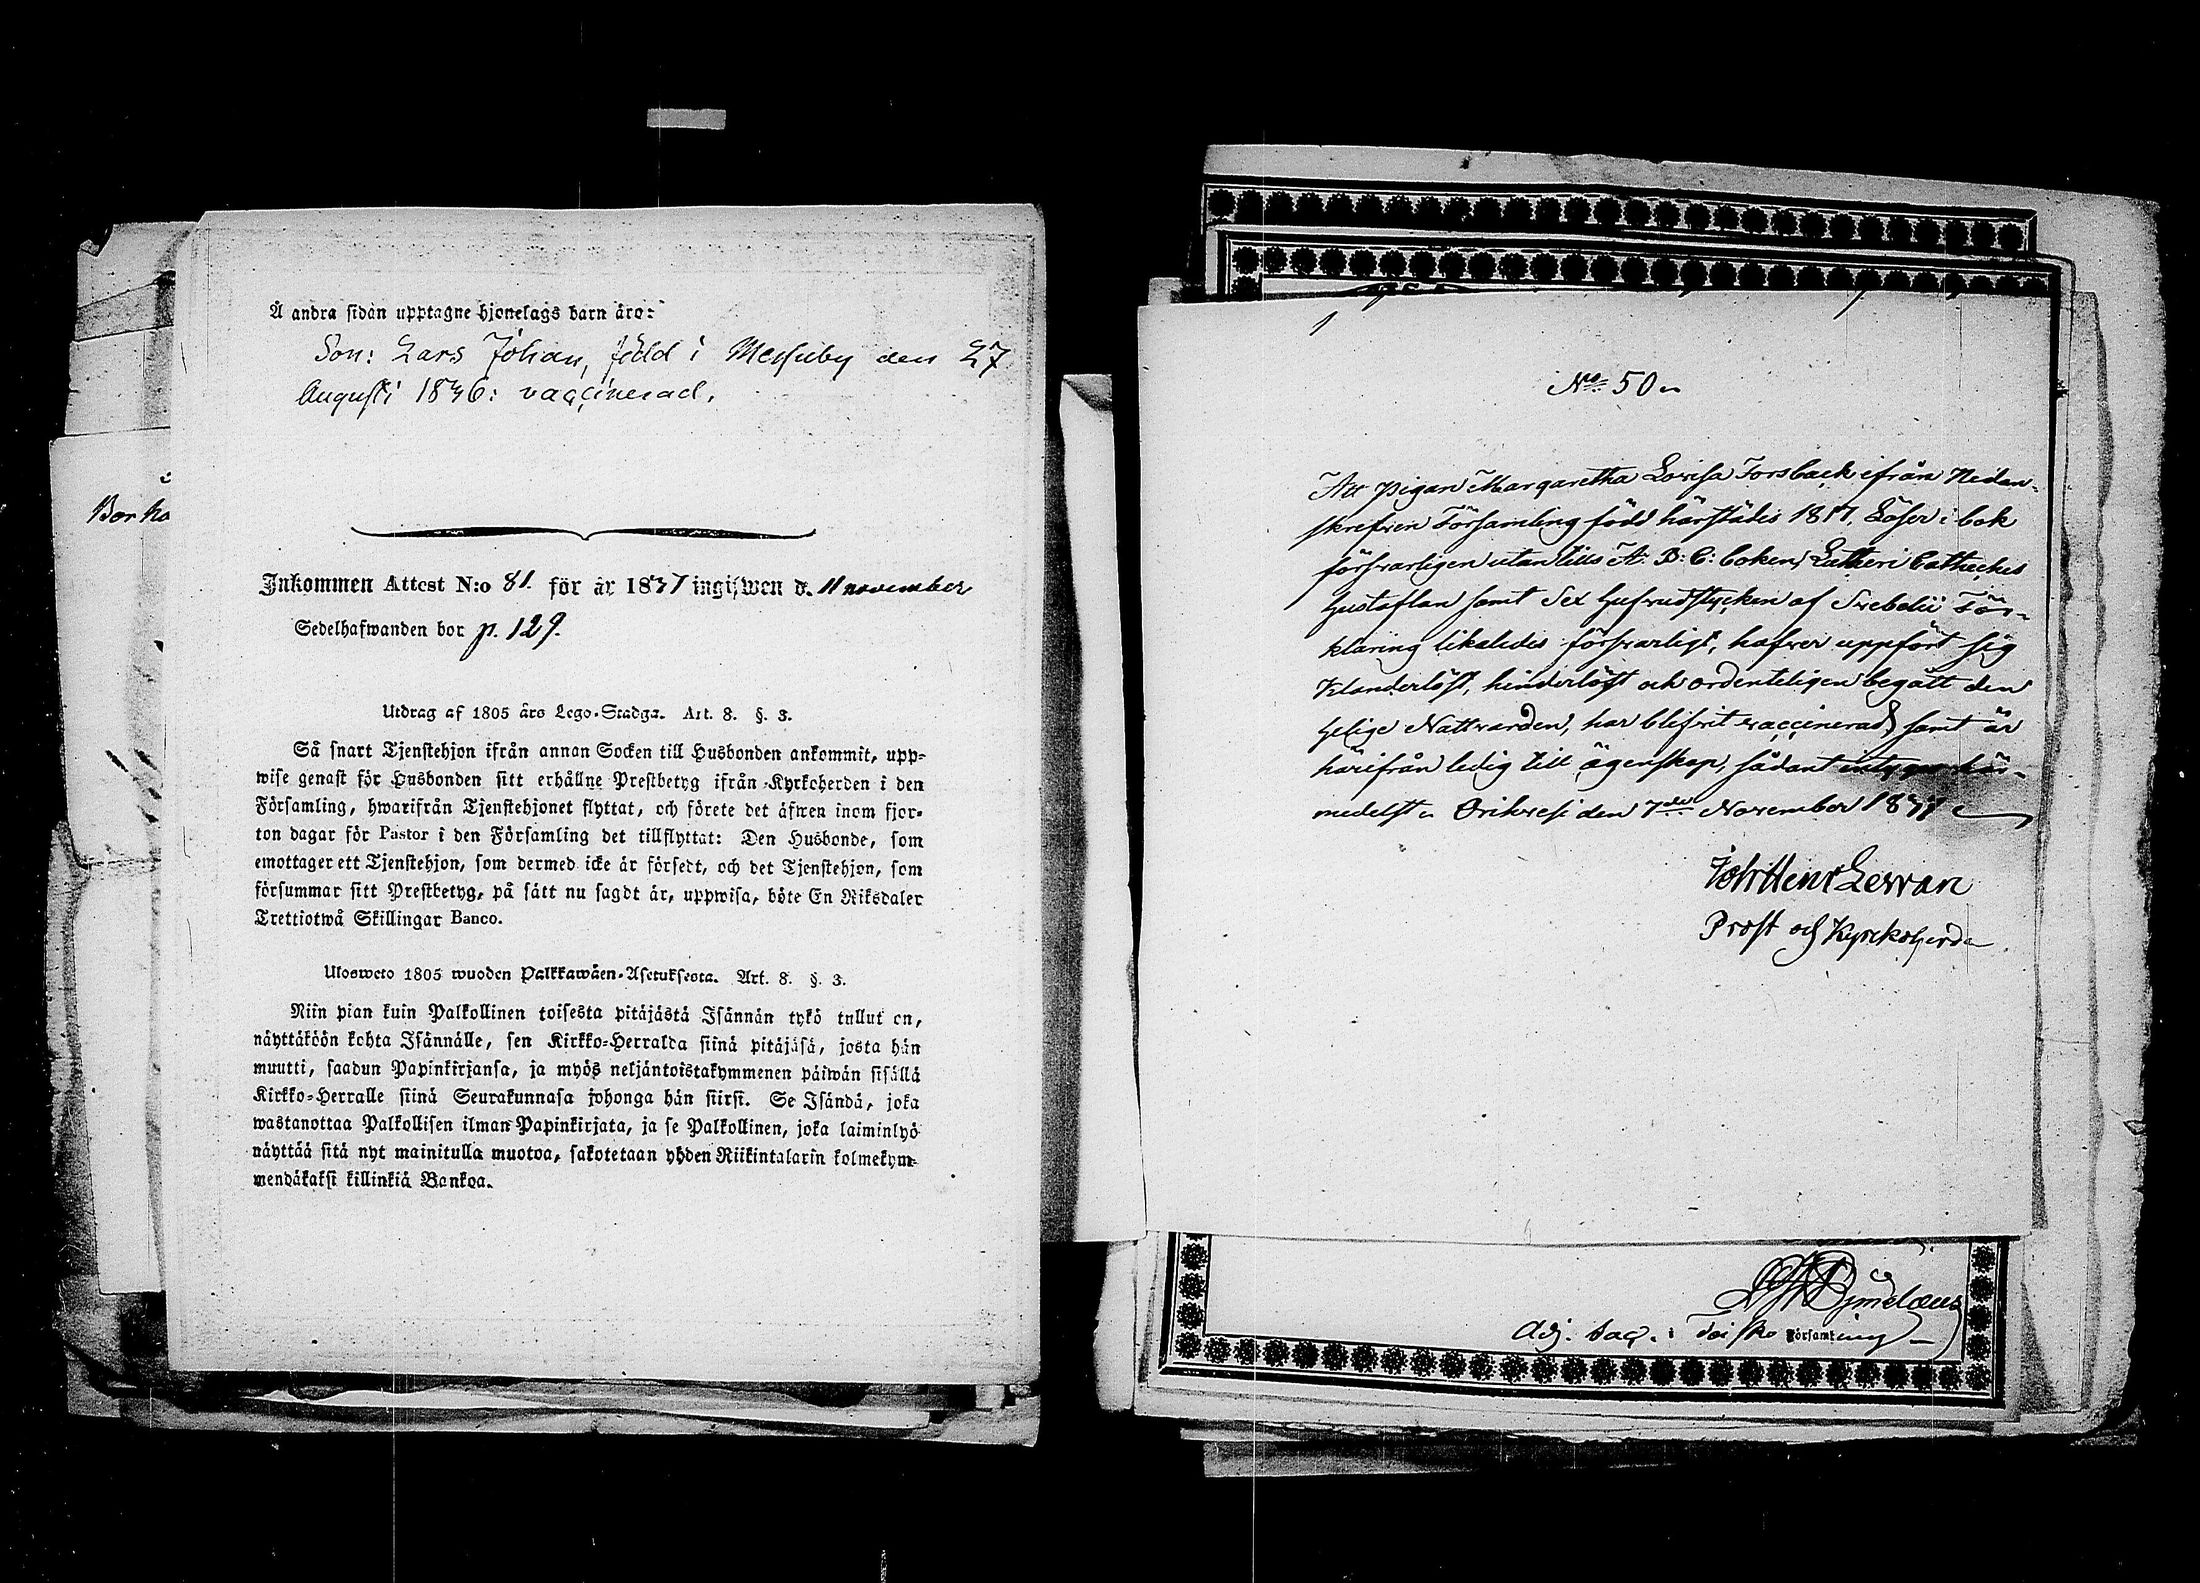 Å andra sidan upptagne hjonelags barn äro:
Son: Lars Johan, född i Messuby den 27
Augusti 1836: vaccinerad.
Inkommen Attest N:o 81. för år 1837 ingifwen d. 11 november
Sedelhafwanden bor p. 129.
Utdrag af 1805 års Lego-Stadga. Art. 8. §. 3.
Så snart Tjenstehjon ifrån annan Socken till Husbonden ankommit, upp-
wise genast för Husbonden sitt erhållne Prestbetyg ifrån Kyrkoherden i den
Församling, hwarifrån Tjenstehjonet flyttat, och förete det äfwen inom fjor-
ton dagar för Pastor i den Församling det tillflyttat: Den Husbonde, som
emottager ett Tjenstehjon, som dermed icke är försedt, och det Tjenstehjon, som
försummar sitt Prestbetyg, på sätt nu sagdt är, uppwisa, böte En Riksdaler
Trettiotwå Skillingar Banco.
Ulosweto 1805 wuoden Palkkawäen-Asetuksesta. Art. 8. §. 3.
Niin pian kuin Palkollinen toisesta pitäjästä Isännän tykö tullut on,
näyttäköön kohta Isännälle, sen Kirkko-Herralda siinä pitäjäsä, josta hän
muutti, saadun Papinkirjansa, ja myös neljäntoistakymmenen päiwän sisällä
Kirkko-Herralle siinä Seurakunnasa johonga hän siirsi. Se Isändä, joka
wastanottaa Palkollisen ilman Papinkirjata, ja se Palkollinen, joka laiminlyö
näyttää sitä nyt mainitulla muotoa, sakotetaan yhden Riikintalarin kolmekym-
mendäkaksi killinkiä Bankoa.
Bor ho
No 50
Att Pigan Margaretha Lovisa Forsback ifrån Nedan-
skrefven Församling född härstädes 1817, Läser i bok
försvarligen utantills A: B: C: boken, Lutheri Catheches
Hustaflan samt Sex hufvudstycken af Svebelii För-
klaring likaledes försvarligt, hafver uppfört sig
klanderlöst, hinderlöst och ordenteligen begått den
Helige Nattvarden, har blifvit vaccinerad, samt är
härifrån ledig till ägenskap, sådant intygar här-
medelst. Orihvesi den 7de November 1837
Joh: Henr Levvan
Prost och Kyrckoherde
Adj. Sac. i Teisko Församling